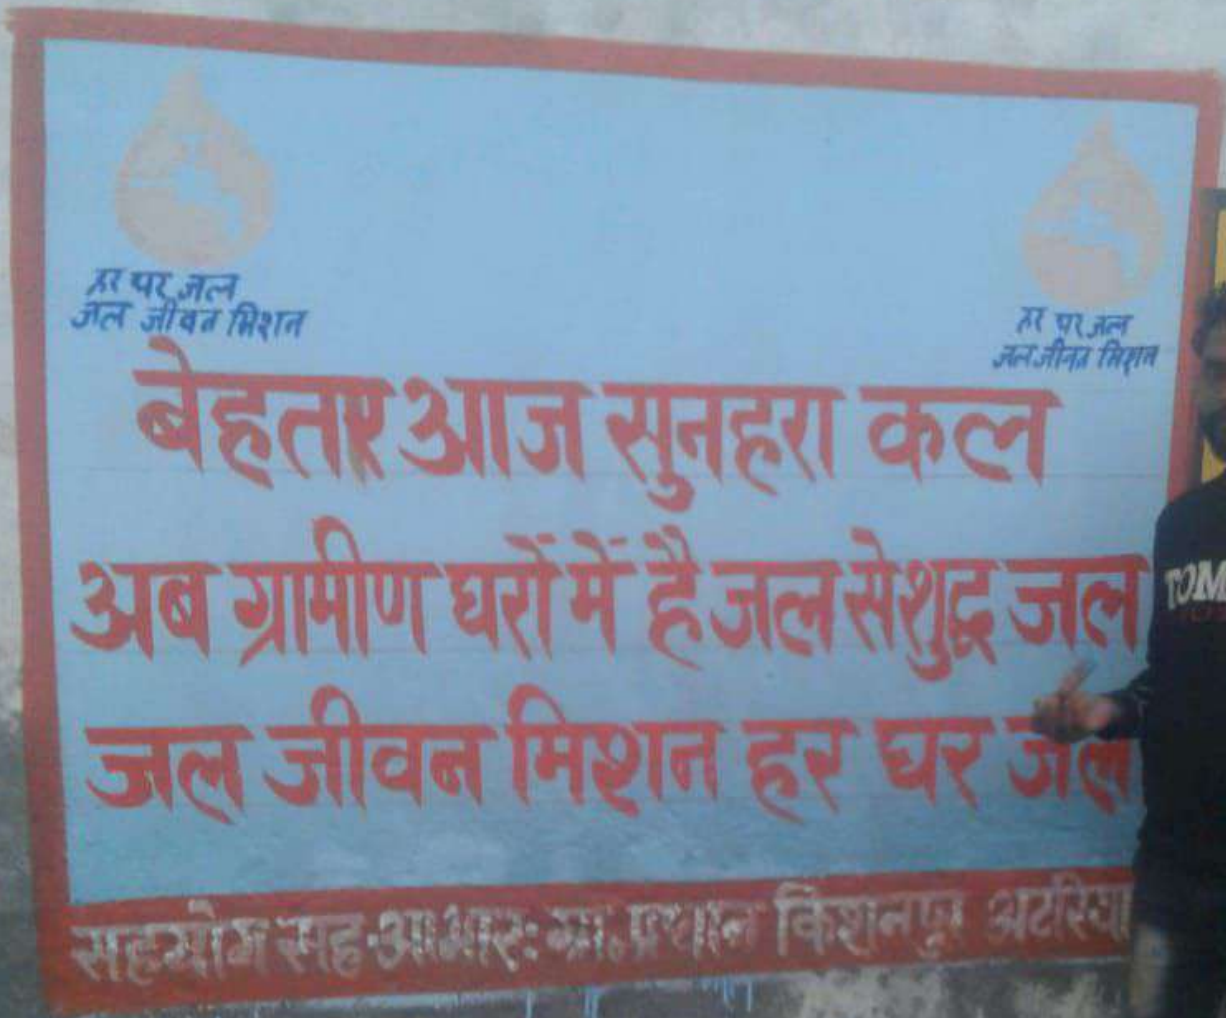 हर घर जल
जल जीवन मिशन
हर घर जल
जल जीवन मिशन
बेहतर आज सुनहरा कल
अब ग्रामीण घरों में है जल से शुद्ध जल
जल जीवन मिशन हर घर जल
सहयोग सह-आभारः ग्रा. प्रधान किशनपुर अटरिया
TOM